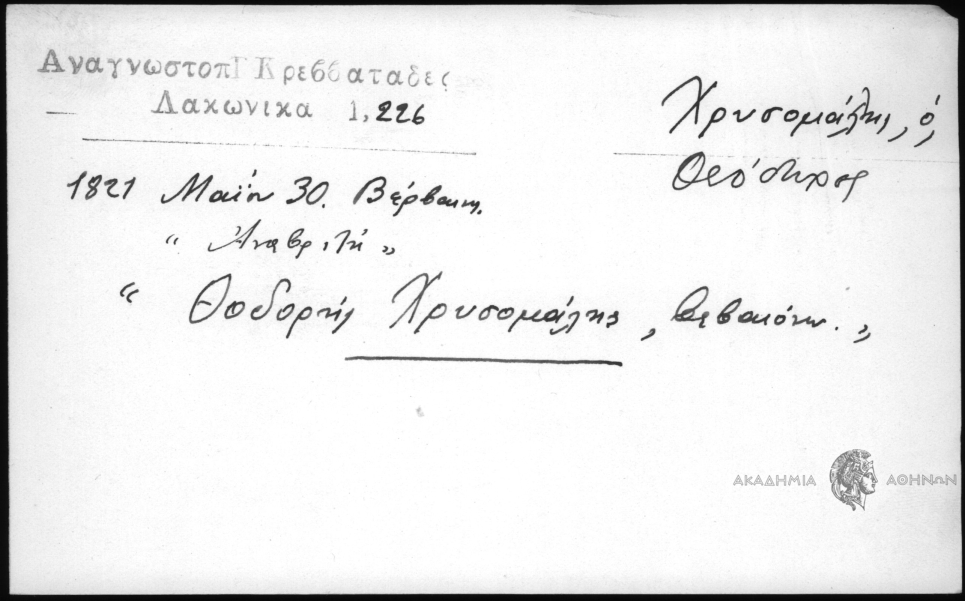 ΑναγνωστοπΓ Κρεββαταδες
— Λακωνικα 1,226
Χρυσομάλης, ὁ,
Θεόδωρος
1821 Μαΐου 30.
“ Ἀναβρυτή „
“ Θοδορής Χρυσομάλης, βεβαιόνω. „
ΑΚΑΔΗΜΙΑ ΑΘΗΝΩΝ